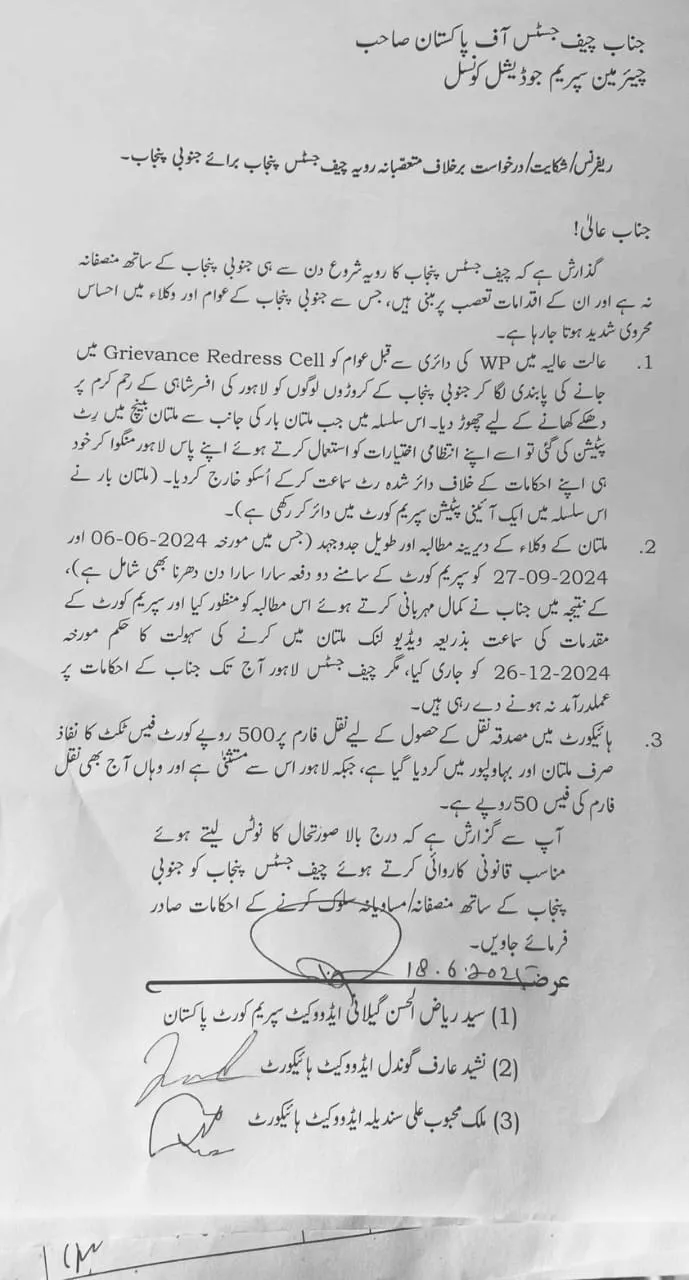 جناب چیف جسٹس آف پاکستان صاحب
چیئرمین سپریم جوڈیشل کونسل
ریفرنس/شکایت/درخواست برخلاف متعصبانہ رویہ چیف جسٹس پنجاب برائے جنوبی پنجاب۔
جناب عالیٰ!
گذارش ہے کہ چیف جسٹس پنجاب کا رویہ شروع دن سے ہی جنوبی پنجاب کے ساتھ منصفانہ
نہ ہے اور ان کے اقدامات تعصب پر مبنی ہیں، جس سے جنوبی پنجاب کے عوام اور وکلاء میں احساس
محروی شدید ہوتا جارہا ہے۔
1. عالت عالیہ میں WP کی دائری سے قبل عوام کو Grievance Redress Cell میں
جانے کی پابندی لگا کر جنوبی پنجاب کے کروڑوں لوگوں کو لاہور کی افسر شاہی کے رحم کرم پر
دھکے کھانے کے لیے چھوڑ دیا۔ اس سلسلہ میں جب ملتان بار کی جانب سے ملتان بینچ میں رِٹ
پٹیشن کی گئی تو اسے اپنے انتظامی اختیارات کو استعمال کرتے ہوئے اپنے پاس لاہور منگوا کر خود
ہی اپنے احکامات کے خلاف دائر شدہ رٹ سماعت کرکے اُسکو خارج کردیا۔ (ملتان بار نے
اس سلسلہ میں ایک آئینی پٹیشن سپریم کورٹ میں دائر کر رکھی ہے)۔
2. ملتان کے وکلاء کے دیرینہ مطالبہ اور طویل جدوجہد (جس میں مورخہ 06-06-2024 اور
27-09-2024 کو سپریم کورٹ کے سامنے دو دفعہ سارا سارا دن دھرنا بھی شامل ہے)،
کے نتیجہ میں جناب نے کمال مہربانی کرتے ہوئے اس مطالبہ کو منظور کیا اور سپریم کورٹ کے
مقدمات کی سماعت بذریعہ ویڈیو لنک ملتان میں کرنے کی سہولت کا حکم مورخہ
26-12-2024 کو جاری کیا، مگر چیف جسٹس لاہور آج تک جناب کے احکامات پر
عملدرآمد نہ ہونے دے رہی ہیں۔
3. ہائیکورٹ میں مصدقہ نقل کے حصول کے لیے نقل فارم پر 500 روپے کورٹ فیس ٹکٹ کا نفاذ
صرف ملتان اور بہاولپور میں کردیا گیا ہے، جبکہ لاہور اس سے مستثنٰی ہے اور وہاں آج بھی نقل
فارم کی فیس 50 روپے ہے۔
آپ سے گزارش ہے کہ درج بالا صورتحال کا نوٹس لیتے ہوئے
مناسب قانونی کاروائی کرتے ہوئے چیف جسٹس پنجاب کو جنوبی
پنجاب کے ساتھ منصفانہ/مساویانہ سلوک کرنے کے احکامات صادر
فرمائے جاویں۔
18.6.202
(1) سید ریاض الحسن گیلانی ایڈووکیٹ سپریم کورٹ پاکستان
(2) نشید عارف گوندل ایڈووکیٹ ہائیکورٹ
(3) ملک محبوب علی سندیلہ ایڈووکیٹ ہائیکورٹ